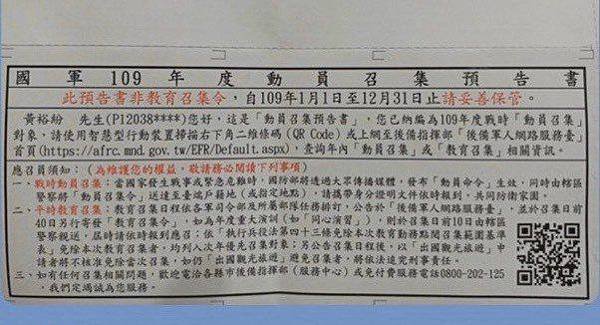 國軍109年度動員召集預告書
此預告書非教育召集令，自109年1月1日至12月31日止請妥善保管。
黃裕紛 先生(P12038****)您好，這是「動員召集預告書」，您已納編為109年度戰時「動員召集」
對象，請使用智慧型行動裝置掃描右下角二維條碼(QR Code)或上網至後備指揮部「後備軍人網路服務臺」
首頁(https://afrc.mnd.gov.tw/EFR/Default.aspx)，查詢年內「動員召集」或「教育召集」相關資訊。
應召員須知：(為維護您的權益，敬請務必閱讀下列事項)
一、戰時動員召集：當國家發生戰事或緊急危難時，國防部將透過大眾傳播媒體，發布「動員命令」生效，同時由轄區
警察將「動員召集令」送達至臺端戶籍地(或指定地點)，請攜帶身分證明文件依時報到，共同防衛家園。
二、平時教育召集：教育召集日程依各軍司令部及所屬部隊任務排訂，公告於「後備軍人網路服務臺」，並於召集日前
40日另行寄發「教育召集令」，如為年度重大演訓(如「同心演習」)，則於召集日前10日由轄區
警察親送，屆時請依時報到應召；依「執行兵役法第四十三條免除本次教育勤務點閱召集範圍基準
表」免除本次教育召集者，均列入次年優先召集對象；另公告召集日程後，以「出國觀光旅遊」申
請者將不核准免除當次召集，如仍「出國觀光旅遊」避免召集者，將依法追究刑事責任。
三、如有任何召集相關問題，歡迎電洽各縣市後備指揮部(服務中心)或免付費服務電話0800-202-125
，我們定竭誠為您服務。